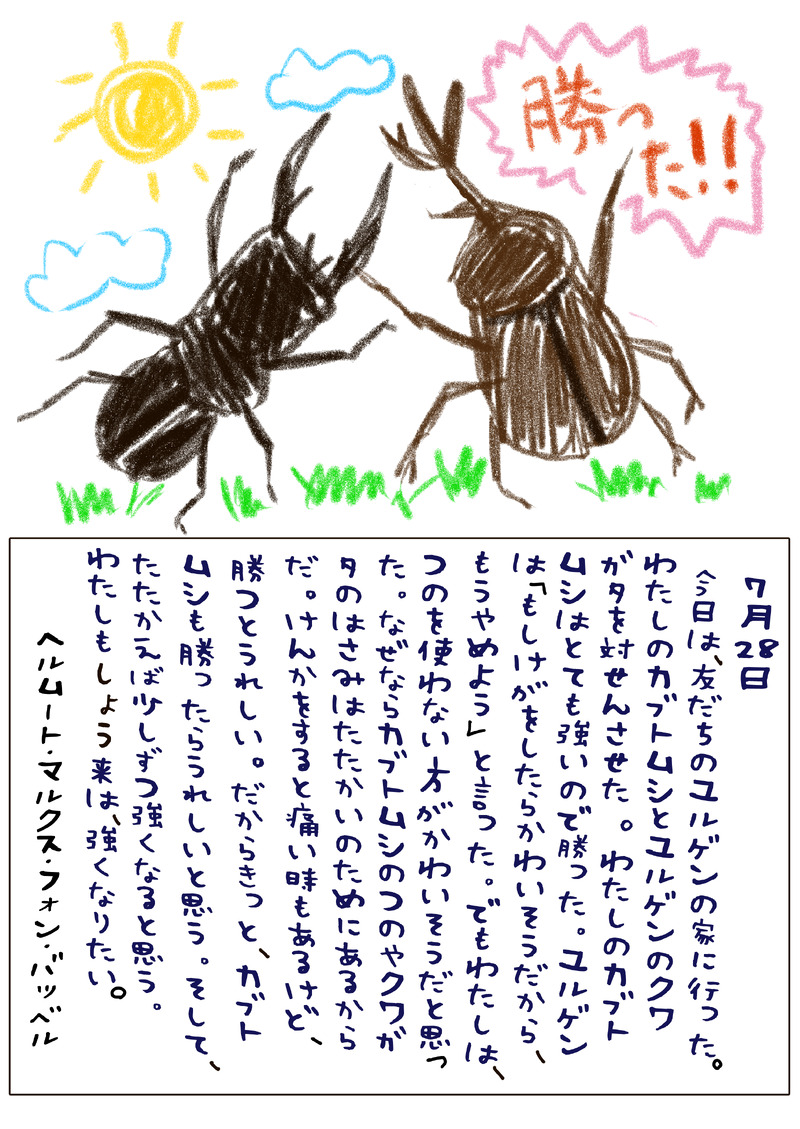 勝っ
た!!
7月28日
今日は、友だちのユルゲンの家に行った。
わたしのカブトムシとユルゲンのクワ
ガタを対せんさせた。わたしのカブト
ムシはとても強いので勝った。ユルゲン
は「もしけがをしたらかわいそうだから、
もうやめよう」と言った。でもわたしは、
つのを使わない方がかわいそうだと思っ
た。なぜならカブトムシのつのやクワガ
タのはさみはたたかいのためにあるから
だ。けんかをすると痛い時もあるけど、
勝つとうれしい。だからきっと、カブト
ムシも勝ったらうれしいと思う。そして、
たたかえば少しずつ強くなると思う。
わたしもしょう来は、強くなりたい。
ヘルムート・マルクス・フォン・バッベル